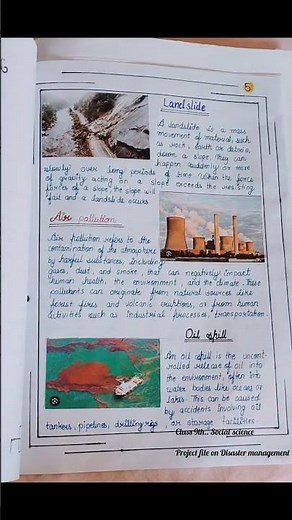 5
Landslide
A landslide is a mass
movement of material, such
as rock, earth or debris,
down a slope. They can
happen suddenly or more
slowly over long periods
of time. When the force
of gravity acting on a slope exceeds the resisting
forces of a slope, the slope will
fail and a landslide occurs
Air pollution
Air pollution refers to the
contamination of the atmosphere
by harmful substances, including
gases, dust, and smoke, that can negatively impact
human health, the environment, and the climate. These
pollutants can originate from natural sources like
forest fires and volcanic eruptions, or from human
activities such as industrial processes, transportation
Oil spill
An oil spill is the uncont-
rolled release of oil into
the environment, often into
water bodies like oceans or
lakes. This can be caused
by accidents involving oil
tankers, pipelines, drilling rigs, or storage facilities
Class 9th.. Social science
Project file on Disaster management